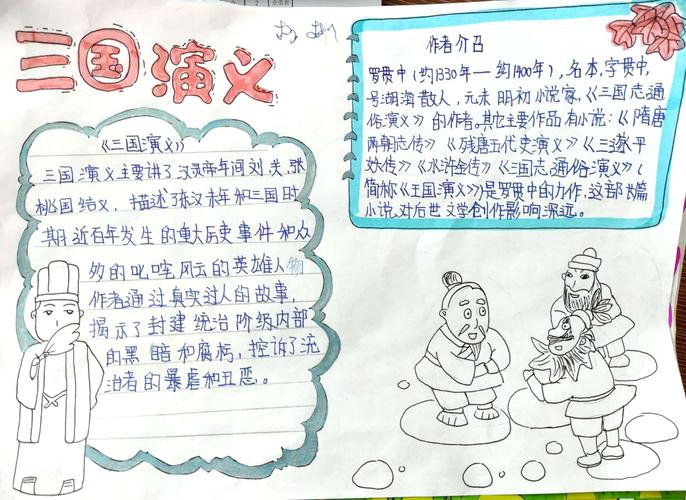 三国演义
《三国演义》
三国演义主要讲了汉灵帝年间刘、关、张
桃园结义，描述了东汉末年和三国时
期近百年发生的重大历史事件和众
多的叱咤风云的英雄人物
作者通过真实过人的故事，
揭示了封建统治阶级内部
的黑暗和腐朽，控诉了统
治者的暴虐和丑恶。
作者介召
罗贯中（约1330年—约1400年），名本，字贯中，
号湖海散人，元末明初小说家，《三国志通
俗演义》的作者。其它主要作品有小说：《隋唐
两朝志传》《残唐五代史演义》《三遂平
妖传》《水浒全传》《三国志通俗演义》（
简称《三国演义》）是罗贯中的力作，这部长篇
小说对后世文学创作影响深远。